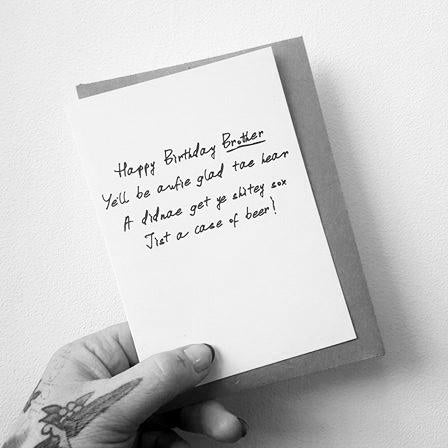 Happy Birthday Brother
Ye'll be awfie glad tae hear
A didnae get ye shitey sox
Jist a case of beer!